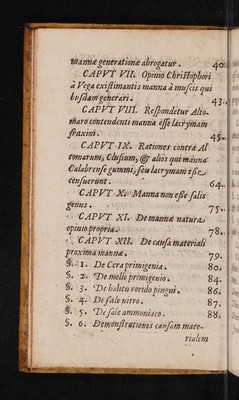 mannæ generatione abrogatur. 40.
CAPVT VII. Opinio Christophori
à Vega existimantis manna à muscis qui
busdam generari. 43.
CAPVT VIII. Respondetur Alto-
maro contendenti manna esse lacrymam
fraxini. 45.
CAPVT IX. Rationes contra Al
tomarum, Clusium, & alios qui manna
Calabrense gummi, seu lacrymam esse
censuerunt. 64.
CAPVT X. Manna non esse salis
genus. 75.
CAPVT XI. De mannæ natura
opinio propria. 78.
CAPVT XII. De causa materiali
proxima mannæ. 79.
§. 1. De Cera primigenia. 80.
§. 2. De melle primigenio. 84.
§. 3. De halitu rorido pingui. 86.
§. 4. De sale nitro. 87.
§. 5. De sale ammoniaco. 88.
§. 6. Demonstrationes causam mate-
rialem